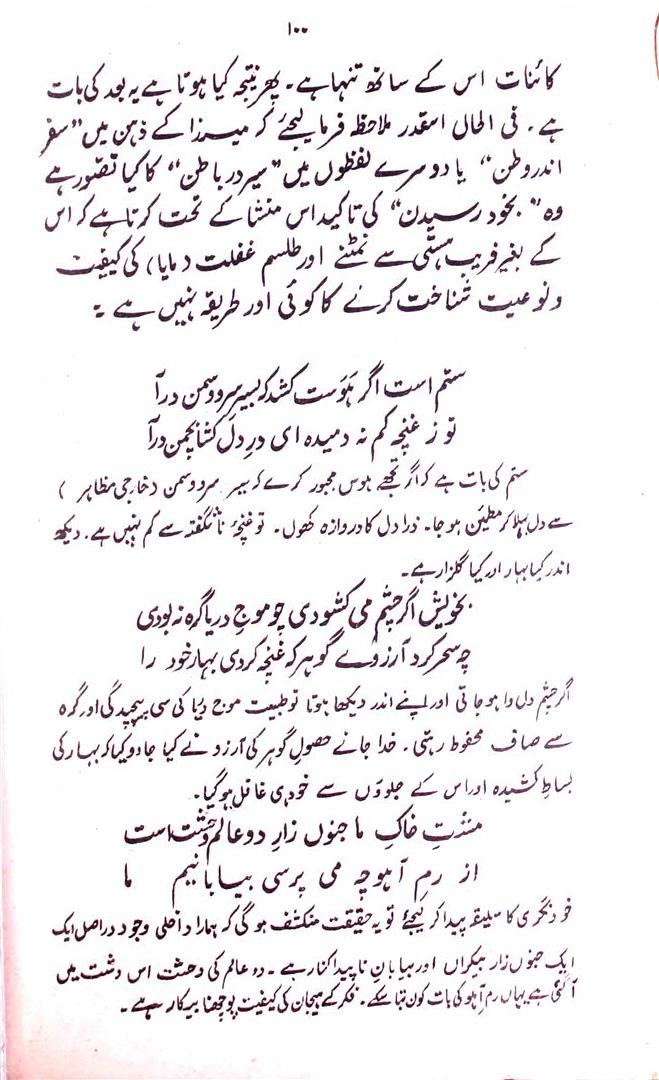 ۱۰۰
کائنات اس کے ساتھ تنہا ہے۔ پھر نتیجہ کیا ہوتا ہے یہ بعد کی بات
ہے۔ فی الحال اسقدر ملاحظہ فرما لیجئے کہ میرزا کے ذہن میں ”سفر
اندر وطن“ یا دوسرے لفظوں میں ”سیر در باطن“ کا کیا تصور ہے
وہ ”بخود رسیدن“ کی تاکید اس منشا کے تحت کرتا ہے کہ اس
کے بغیر فریب ہستی سے نمٹنے اور طلسم غفلت (مایا) کی کیفیت
و نوعیت شناخت کرنے کا کوئی اور طریقہ نہیں ہے ۔
ستم است اگر ہَوَست کشد کہ بسیر سرو و سمن درآ
تو ز غنچہ کم نہ دمیدہ ای درِ دل کشا بچمن درآ
ستم کی بات ہے کہ اگر تجھے ہوس مجبور کرے کہ سیر سرو و سمن (خارجی مظاہر)
سے دل بہلا کر مطمئن ہو جا۔ ذرا دل کا دروازہ کھول۔ تو غنچۂ ناشگفتہ سے کم نہیں ہے۔ دیکھ
اندر کیا بہار اور کیا گلزار ہے۔
بخویش اگر چشم می کشودی چو موجِ دریا گرہ نہ بودی
چہ سحر کرد آرزوے گوہر کہ غنچہ کردی بہار خود را
اگر چشم دل وا ہو جاتی اور اپنے اندر دیکھا ہوتا تو طبیعت موج دریا کی سی پیچیدگی اور گرہ
سے صاف محفوظ رہتی۔ خدا جانے حصولِ گوہر کی آرزو نے کیا جادو کیا کہ بہار کی
بساطِ کشیدہ اور اس کے جلوؤں سے خود ہی غافل ہو گیا۔
مشتِ خاکِ ما جنوں زارِ دو عالم وحشت است
از رمِ آہو چہ می پرسی بیابانیم ما
خود نگری کا سلیقہ پیدا کر لیجئے تو یہ حقیقت منکشف ہو گی کہ ہمارا داخلی وجود دراصل ایک
ایک جنوں زار بیکراں اور بیابانِ ناپیدا کنار ہے۔ دو عالم کی وحشت اس دشت میں
آ گئی ہے یہاں رم آہو کی بات کون بتا سکے۔ فکر کے ہیجان کی کیفیت پوچھنا بیکار ہے۔